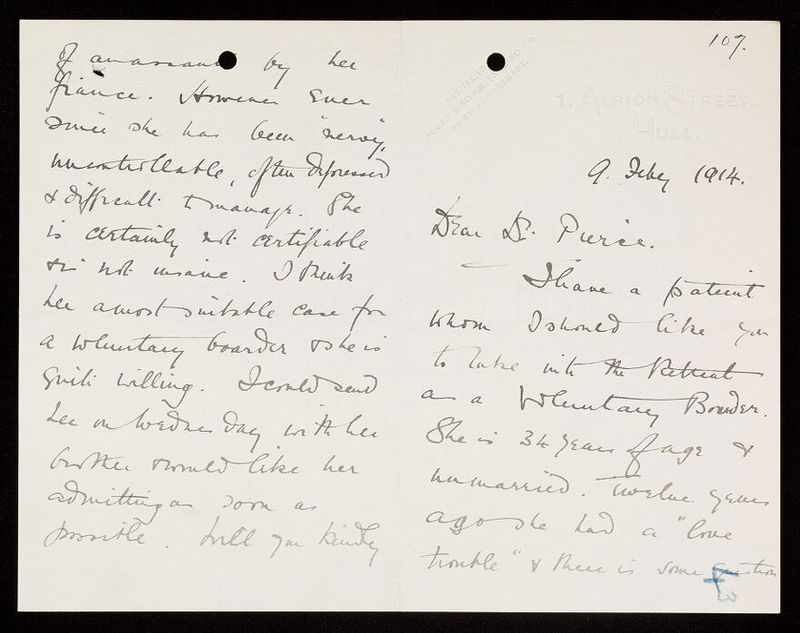 107.
1. ALBION STREET,
HULL.
9. Feby 1914.
Dear Dr. Pierce.
I have a patient
whom I should like you
to take into the Retreat
as a Voluntary Boarder.
She is 34 years of age &
unmarried. Twelve years
ago she had a "love
trouble" & there is some question
of an assault by her
fiance. However ever
since she has been "nervy",
uncontrollable, often depressed
& difficult to manage. She
is certainly not certifiable
& is not insane. I think
her a most suitable case for
a voluntary boarder & she is
quite willing. I could send
her on Wednesday with her
brother & would like her
admitting as soon as
possible. Will you kindly